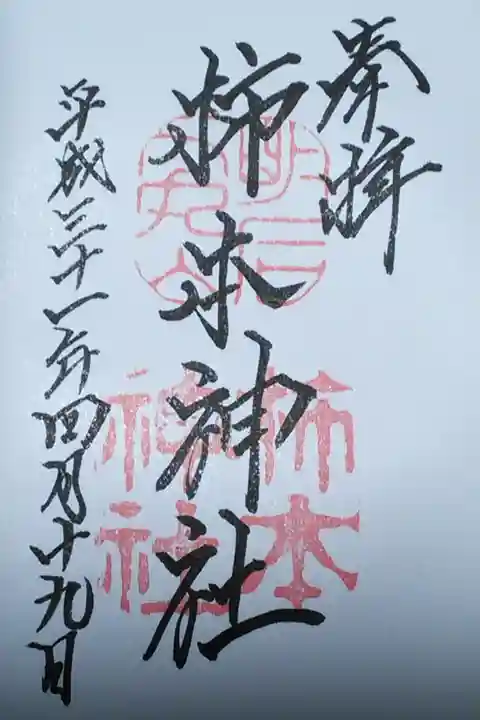 奉拝
柿本神社
平成三十一年四月十九日
明石
人丸山
柿本
神社